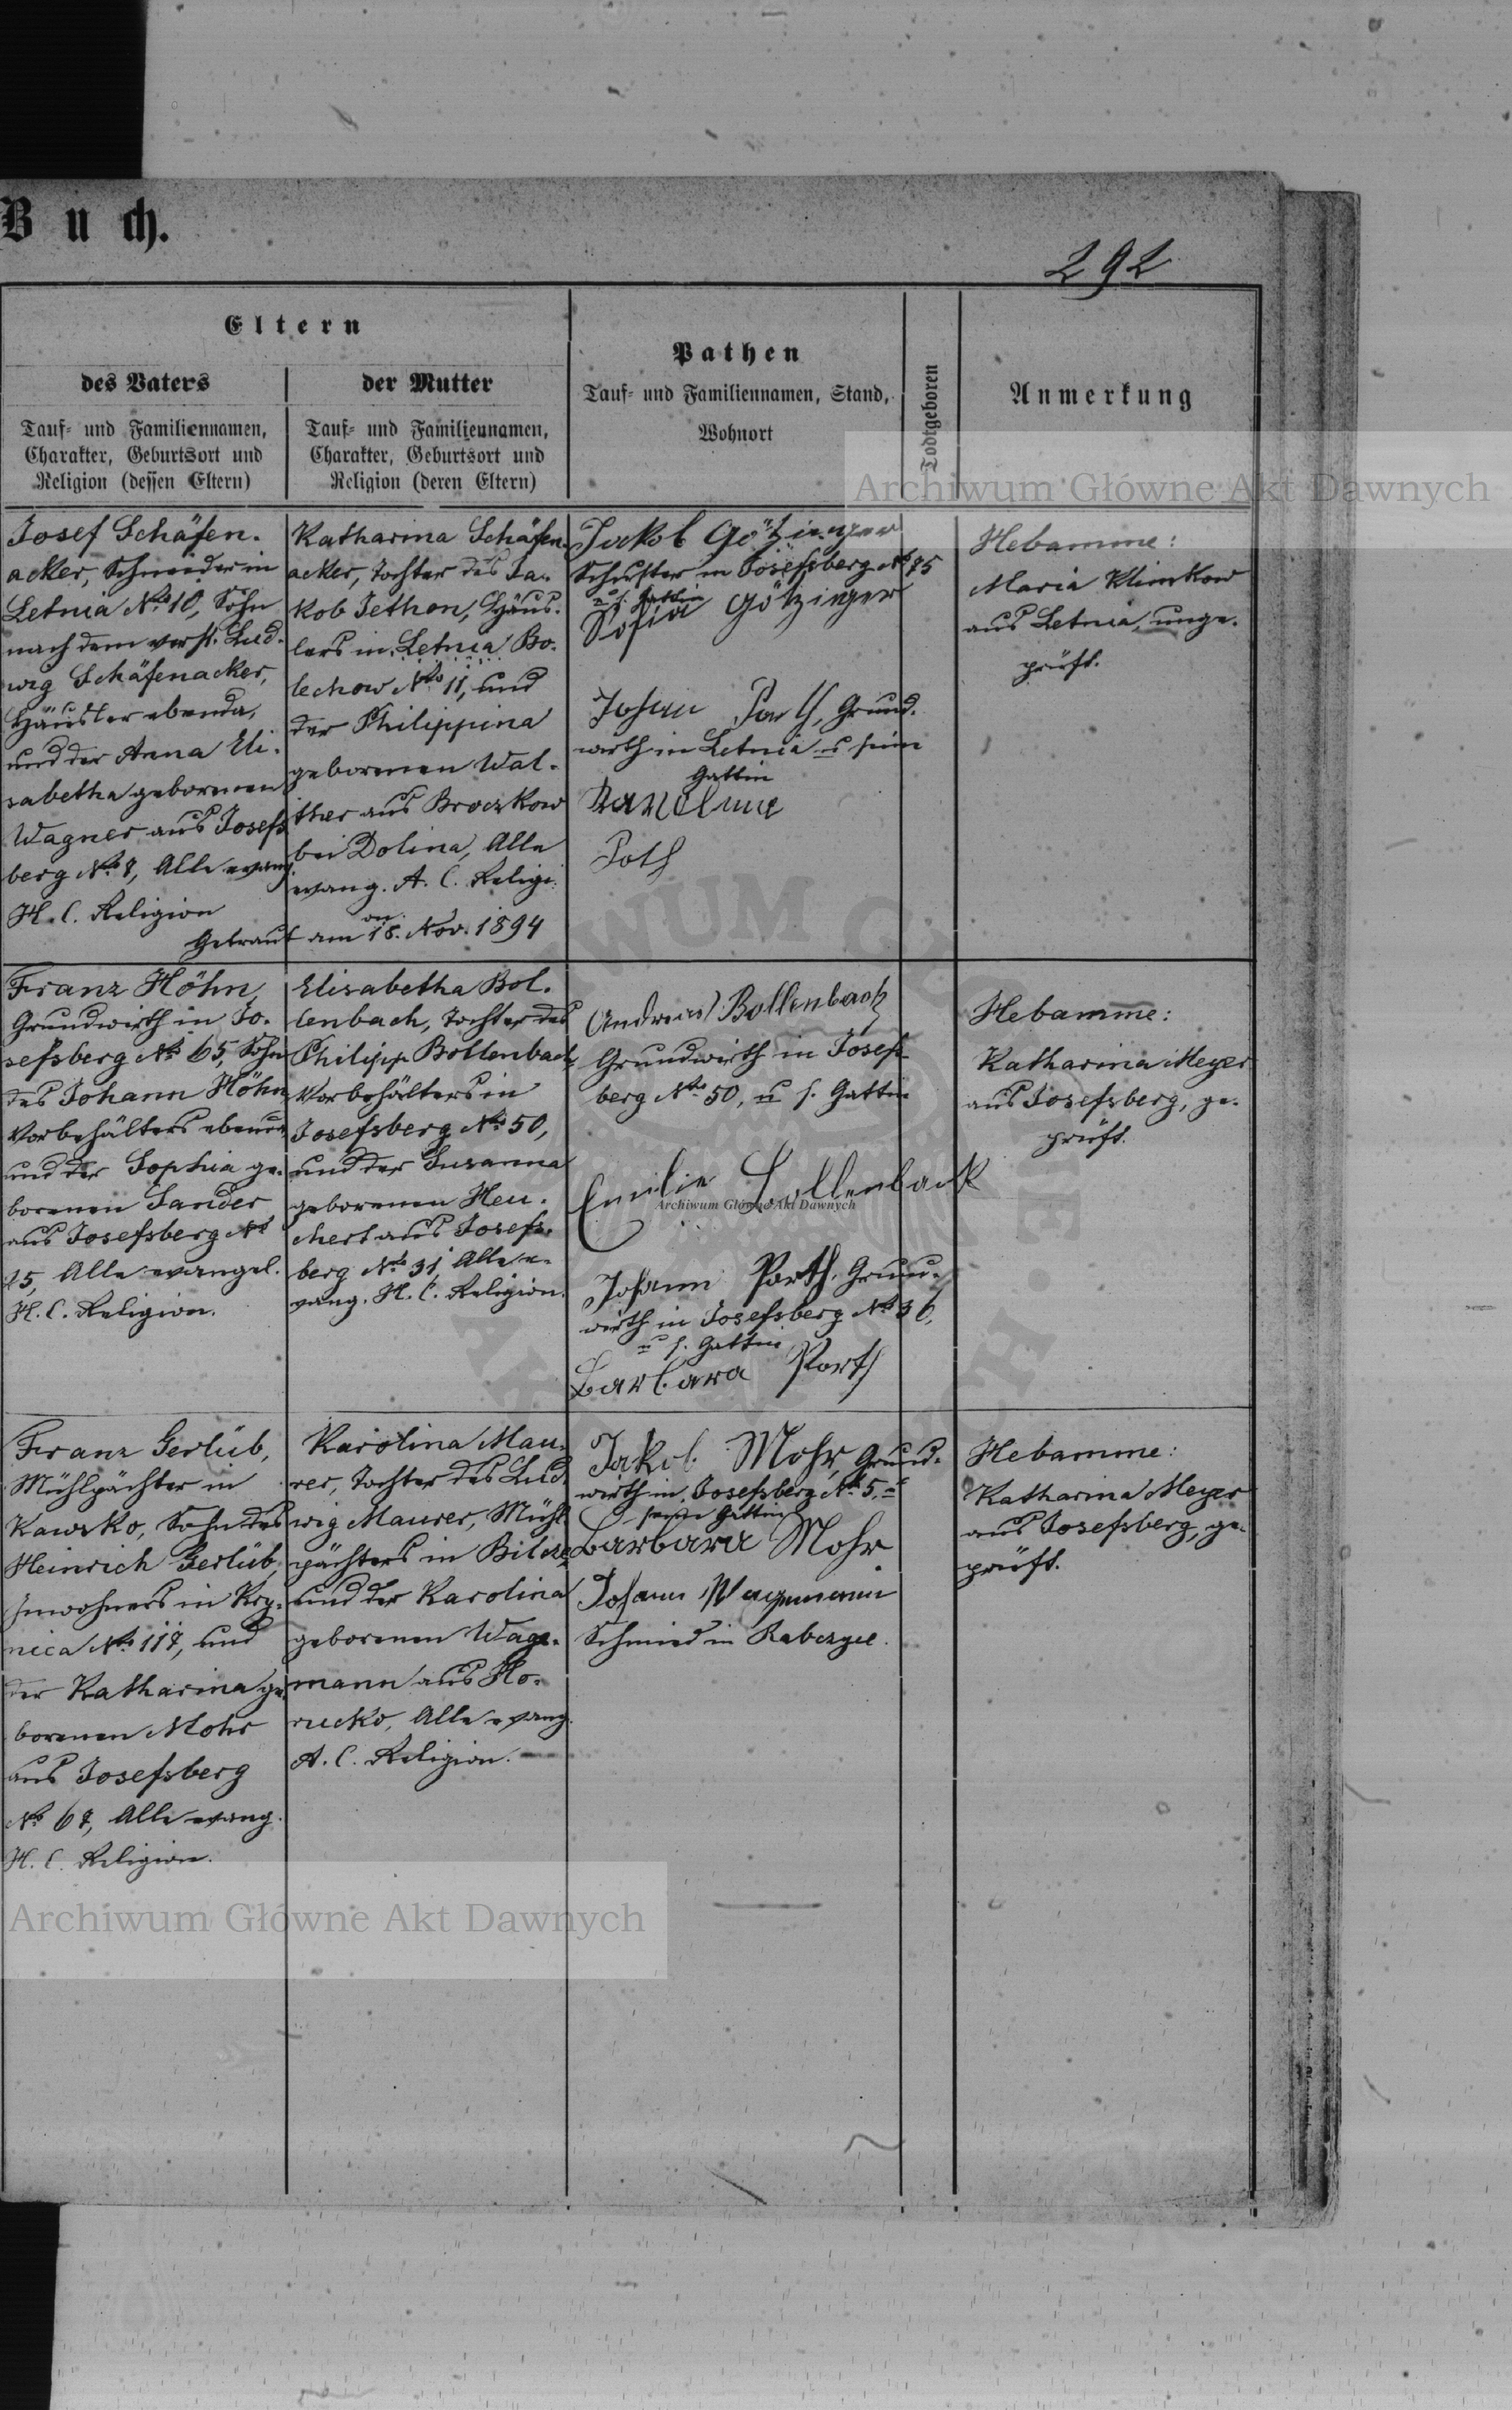 Buch.
292
Eltern
des Vaters
Tauf- und Familiennamen,
Charakter, Geburtsort und
Religion (dessen Eltern)
der Mutter
Tauf- und Familiennamen,
Charakter, Geburtsort und
Religion (deren Eltern)
Pathen
Tauf- und Familiennamen, Stand,
Wohnort
Todtgeboren
Anmerkung
Archiwum Główne Akt Dawnych
Josef Schäfen-
acker, Schneider in
Letnia No 10, Sohn
nach dem verst. Lud-
wig Schäfenacker,
Häusler ebenda,
und der Anna Eli-
sabetha geborenen
Wagner aus Josefs
berg No 8, Alle evang
H. C. Religion
Katharina Schäfen-
acker, Tochter des Ja-
kob Jethon, Häus-
lers in Letnia Bo-
lechow No 11, und
der Philippina
geborenen Wal-
ther aus Broczkow
bei Dolina, Alle
evang. A. C. Religi-
on.
Getraut am 18. Nov. 1894
Jakob Götzinger
Schuster in Josefsberg No 85
u s. Gattin
Sofia Götzinger
Johann Poth, Grund-
wirth in Letnia u seine
Gattin
Poth
Hebamme:
Maria Klimkow
aus Letnia, unge-
prüft.
Franz Höhn,
Grundwirth in Jo-
sefsberg No 65, Sohn
des Johann Höhn
Vorbehälters ebenda
und der Sophia ge-
borenen Sander
aus Josefsberg No
15, Alle evangel.
H. C. Religion.
Elisabetha Bol-
lenbach, Tochter des
Philipp Bollenbach,
Vorbehälters in
Josefsberg No 50,
und der Susanna
geborenen Heu-
chert aus Josefs-
berg No 31, Alle e-
vang. H. C. Religion.
Andreas Bollenbach
Grundwirth in Josefs-
berg No 50, u s. Gattin
Emilie Bollenbach
Archiwum Główne Akt Dawnych
Johann Porth, Grund-
wirth in Josefsberg No 36,
u s. Gattin
Barbara Porth
Hebamme:
Katharina Meyer
aus Josefsberg, ge-
prüft.
Franz Gerlüb,
Mühlpächter in
Kawsko, Sohn des
Heinrich Gerlüb,
Inwohners in Kry-
nica No 117, und
der Katharina ge-
borenen Mohr
aus Josefsberg
No 67, Alle evang.
H. C. Religion.
Karolina Mau-
rer, Tochter des Lud-
wig Maurer, Mühl-
pächters in Bilcze,
und der Karolina
geborenen Wage-
mann aus Ho-
rucko, Alle evang.
A. C. Religion.
Jakob Mohr, Grund-
wirth in Josefsberg No 5, u
seine Gattin
Barbara Mohr
Johann Wagemann
Schmied in Rabczyce.
Hebamme:
Katharina Meyer
aus Josefsberg, ge-
prüft.
Archiwum Główne Akt Dawnych